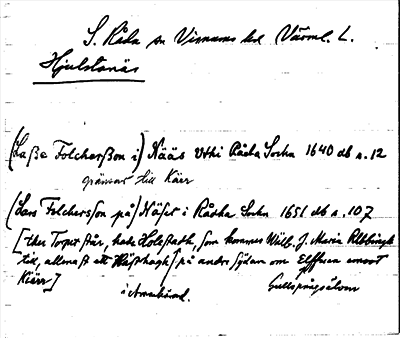 S. Råda sn Visnums hd Värml. L.
Hjulstanäs
(Laße Folcherßon i) Nääs Uthi Råda Sochn 1640 db s. 12
gränsar till Kärr
(Lars Folchersson på) Näset i Rådha Sochn 1651 db s. 107
[ther Torpet står, hade Holestadh, som kommer Wälb. J. Maria
till, allenast ett på andre Sydan om Elffwen emoot
Kiärr] Gullspångsälven